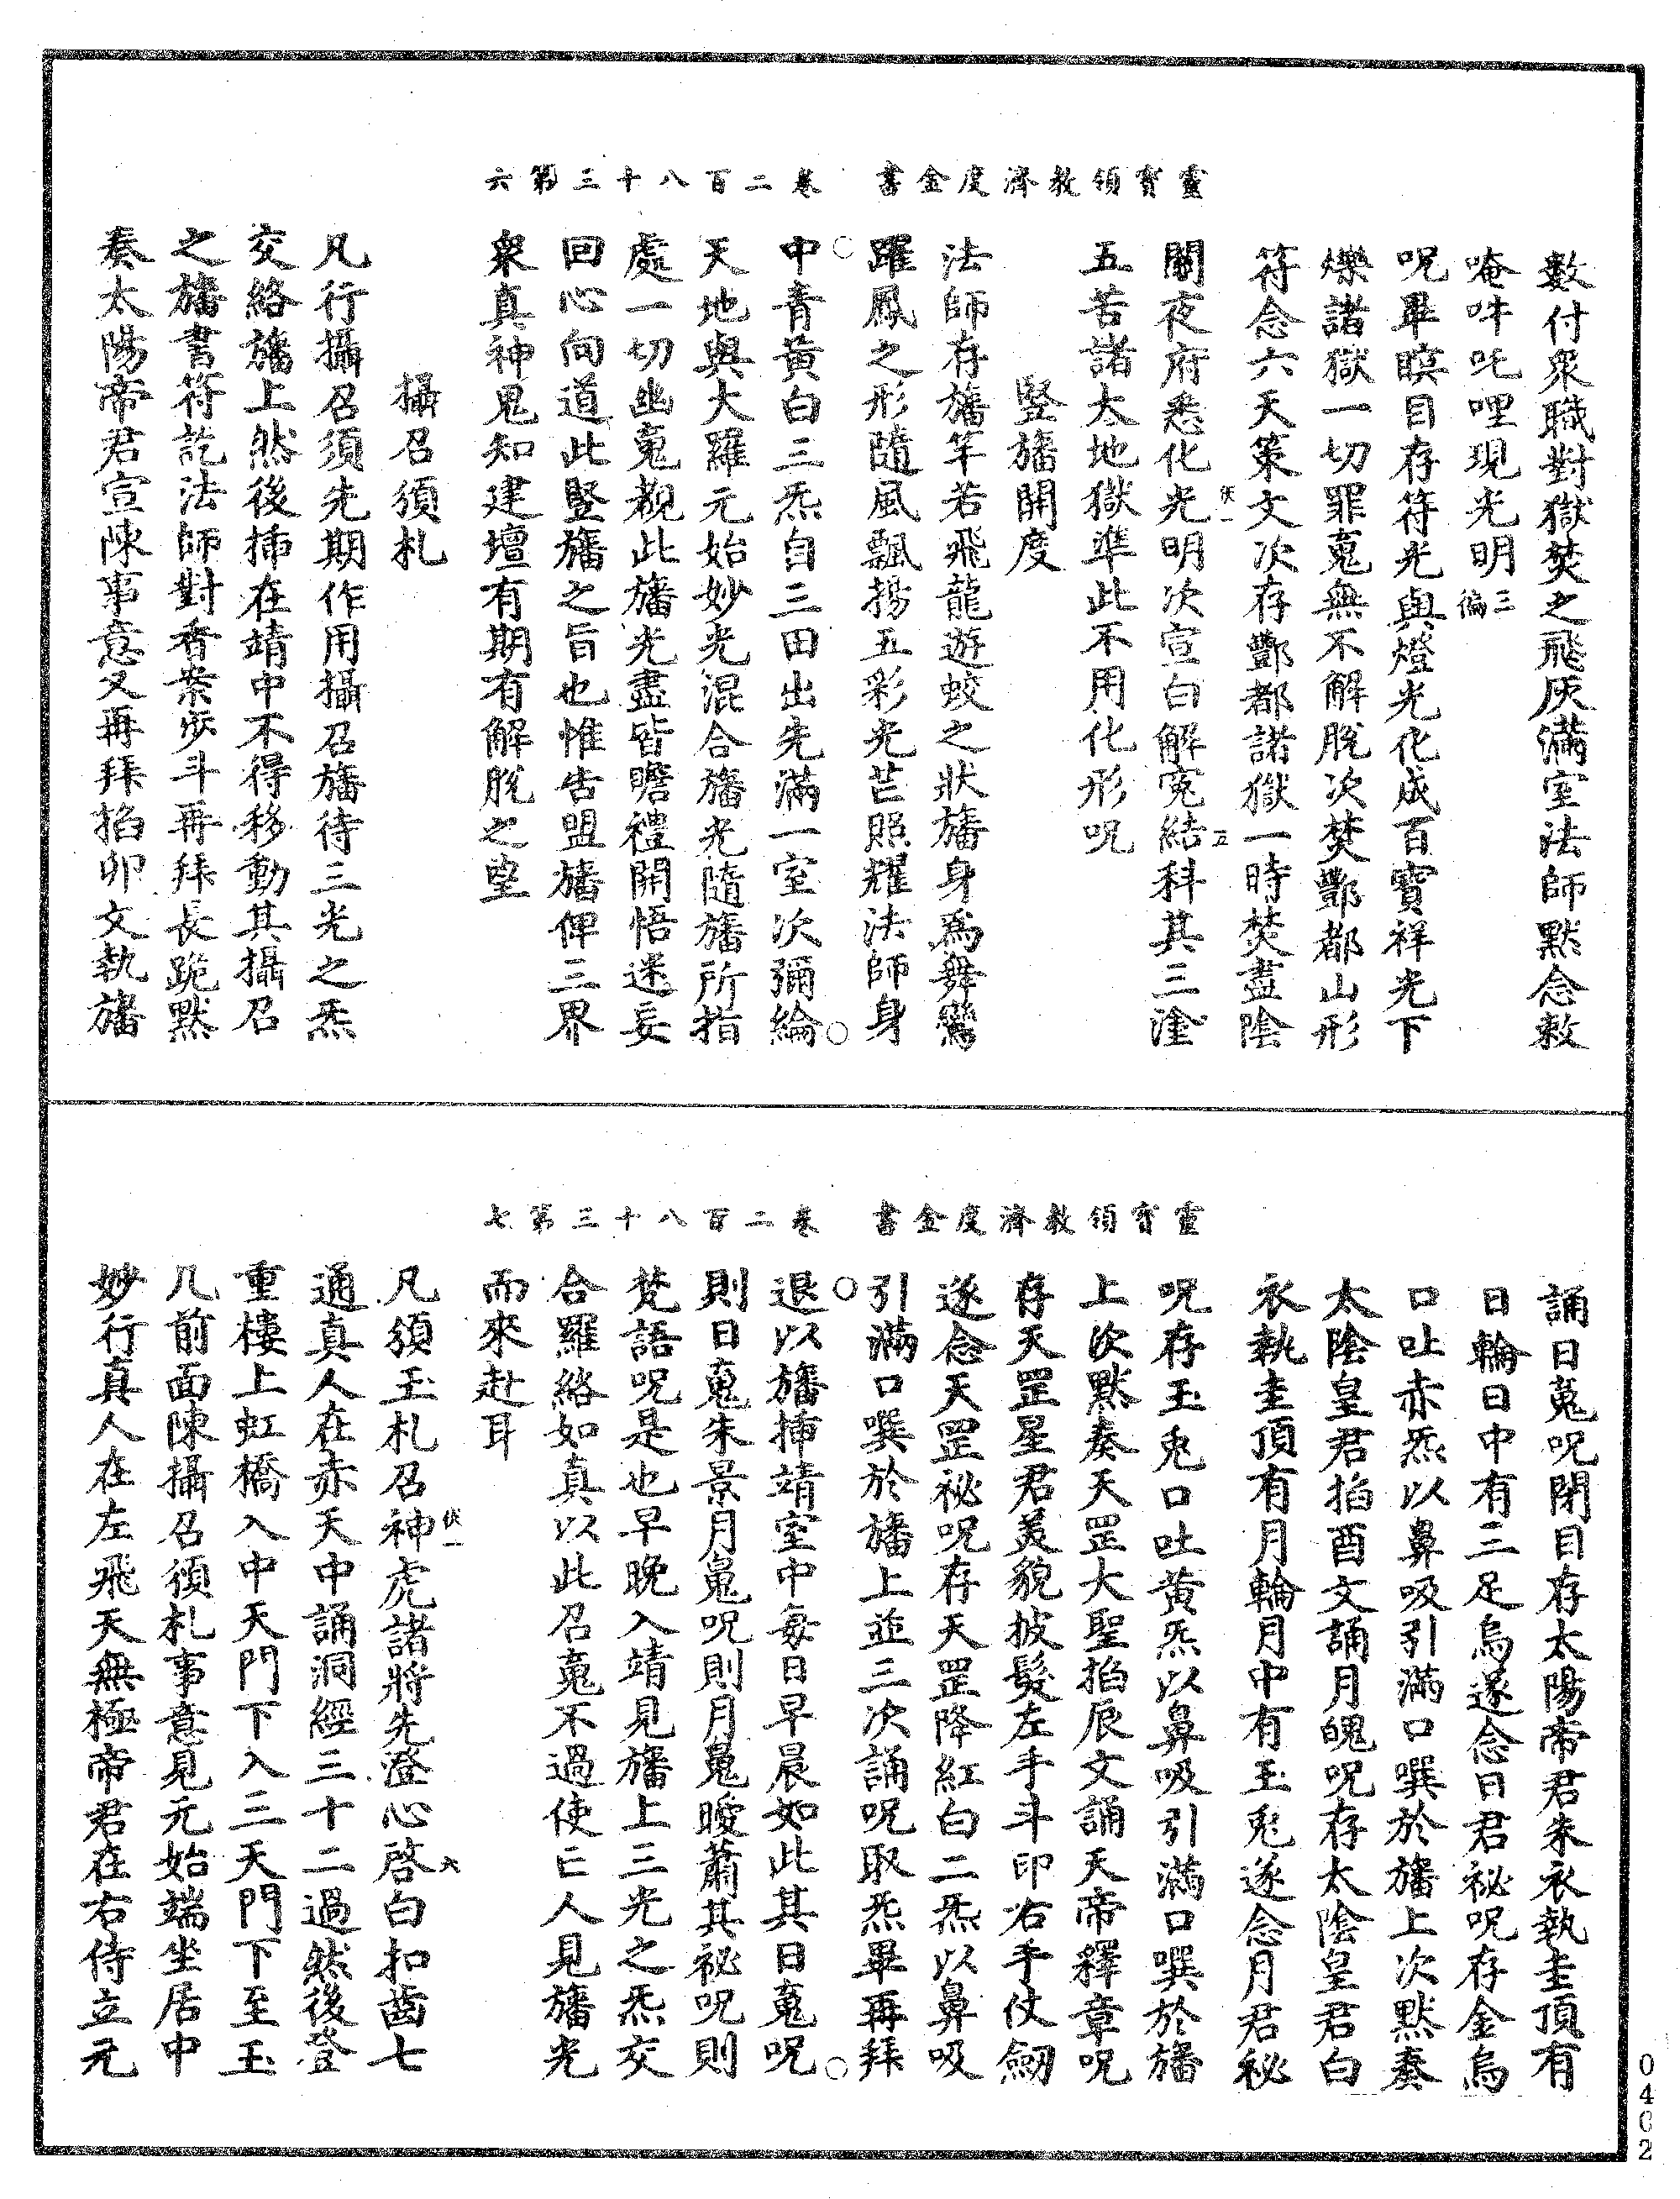 靈寶領教濟度金書　卷二百八十三第六
數付衆職對獄焚之飛灰滿室法師默念敕
唵吽吒哩現光明三徧
呪畢瞑目存符光與燈光化成百寶祥光下
爍諸獄一切罪䰟無不解脫次焚酆都山形
符念六天策文次存酆都諸獄一時焚盡陰
關夜府悉化光明次宣白解冤結科其三塗
伏一　五
五苦諸大地獄準此不用化形呪
豎旛開度
法師存旛竿若飛龍遊蛟之狀旛身爲舞鸞
躍鳳之形隨風飄揚五彩光芒照耀法師身
中青黄白三炁自三田出先滿一室次彌綸
天地與大羅元始妙光混合旛光隨旛所指
處一切幽䰟覩此旛光盡皆瞻禮開悟迷妄
回心向道此豎旛之旨也惟告盟旛俾三界
衆真神鬼知建壇有期有解脫之望
攝召須札
凡行攝召須先期作用攝召旛待三光之炁
交絡旛上然後揷在靖中不得移動其攝召
之旛書符訖法師對香案步斗再拜長跪默
奏太陽帝君宣陳事意又再拜掐卯文執旛
靈寶領教濟度金書　卷二百八十三第七
誦日䰟呪閉目存太陽帝君朱衣執圭頂有
日輪日中有三足烏遂念日君祕呪存金烏
口吐赤炁以鼻吸引滿口噀於旛上次默奏
太陰皇君掐酉文誦月魄呪存太陰皇君白
衣執圭頂有月輪月中有玉兎遂念月君祕
呪存玉兎口吐黄炁以鼻吸引滿口噀於旛
上次默奏天罡大聖掐辰文誦天帝釋章呪
存天罡星君美貌披髮左手斗印右手仗劔
遂念天罡祕呪存天罡降紅白二炁以鼻吸
引滿口噀於旛上並三次誦呪取炁畢再拜
退以旛揷靖室中每日早晨如此其日䰟呪
則日䰟朱景月䰟呪則月䰟曖蕭其祕呪則
梵語呪是也早晚入靖見旛上三光之炁交
合羅絡如真以此召䰟不過使亡人見旛光
而來赴耳
凡須玉札召神虎諸將先澄心啓白扣齒七
伏一　六
通真人在赤天中誦洞經三十二過然後登
重樓上虹橋入中天門下入三天門下至玉
几前面陳攝召須札事意見元始端坐居中
妙行真人在左飛天無極帝君在右侍立元
0402